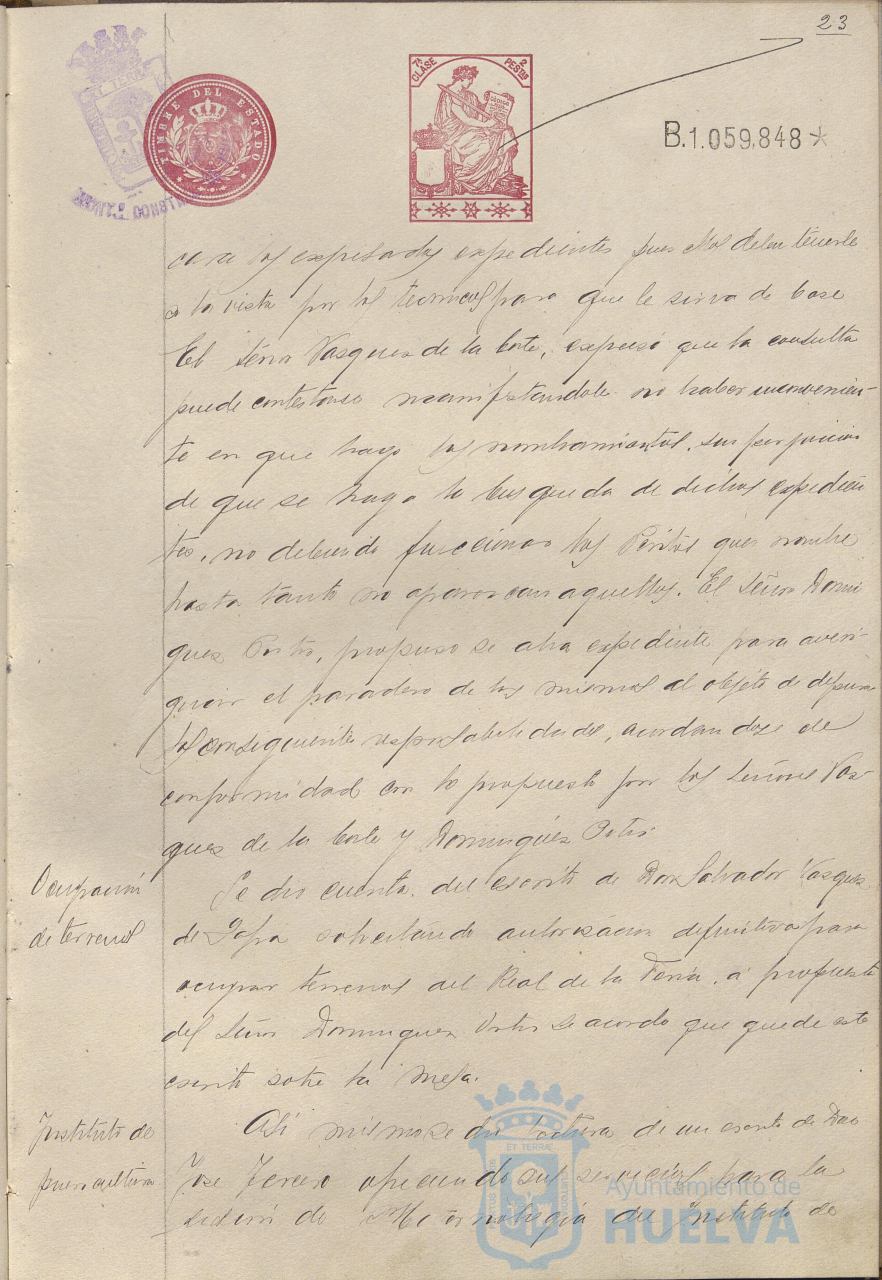 23
7ª CLASE 2 PESTAS
TIMBRE DEL ESTADO
B.1.059.848*
los expresados expedientes pues deben tenerse
a la vista por los tecnicos para que le sirva de base
El Señor Vasquez de la Corte, expresó que la consulta
puede contestarse manifestandole no haber inconvenien-
te en que haga los nombramientos, sin perjuicio
de que se haga la busqueda de dichos expedien
tes, no debiendo funccionar los Peritos que nombre
hasta tanto no aparezcan aquellos. El Señor Domin
guez, propuso se abra expediente para averi-
guar el paradero de los mismos al objeto de depurar
las consiguientes responsabilidades, acordandose de
conformidad con lo propuesto por los Señores Vas-
ques de la Corte y Dominguez
Ocupación
de terrenos
Se dio cuenta del escrito de Don Salvador Vasquez
de Zafra solicitando autorizacion definitiva para
ocupar terrenos del Real de la Feria, a propuesta
del Señor Dominguez se acordo que quede este
escrito sobre la mesa.
Instituto de
puericultura
Asi mismo se dio lectura de un escrito de Don
Jose Tercero ofreciendo sus servicios para la
sección de Maternologia del Instituto de
ET TERRAE
Ayuntamiento de
HUELVA